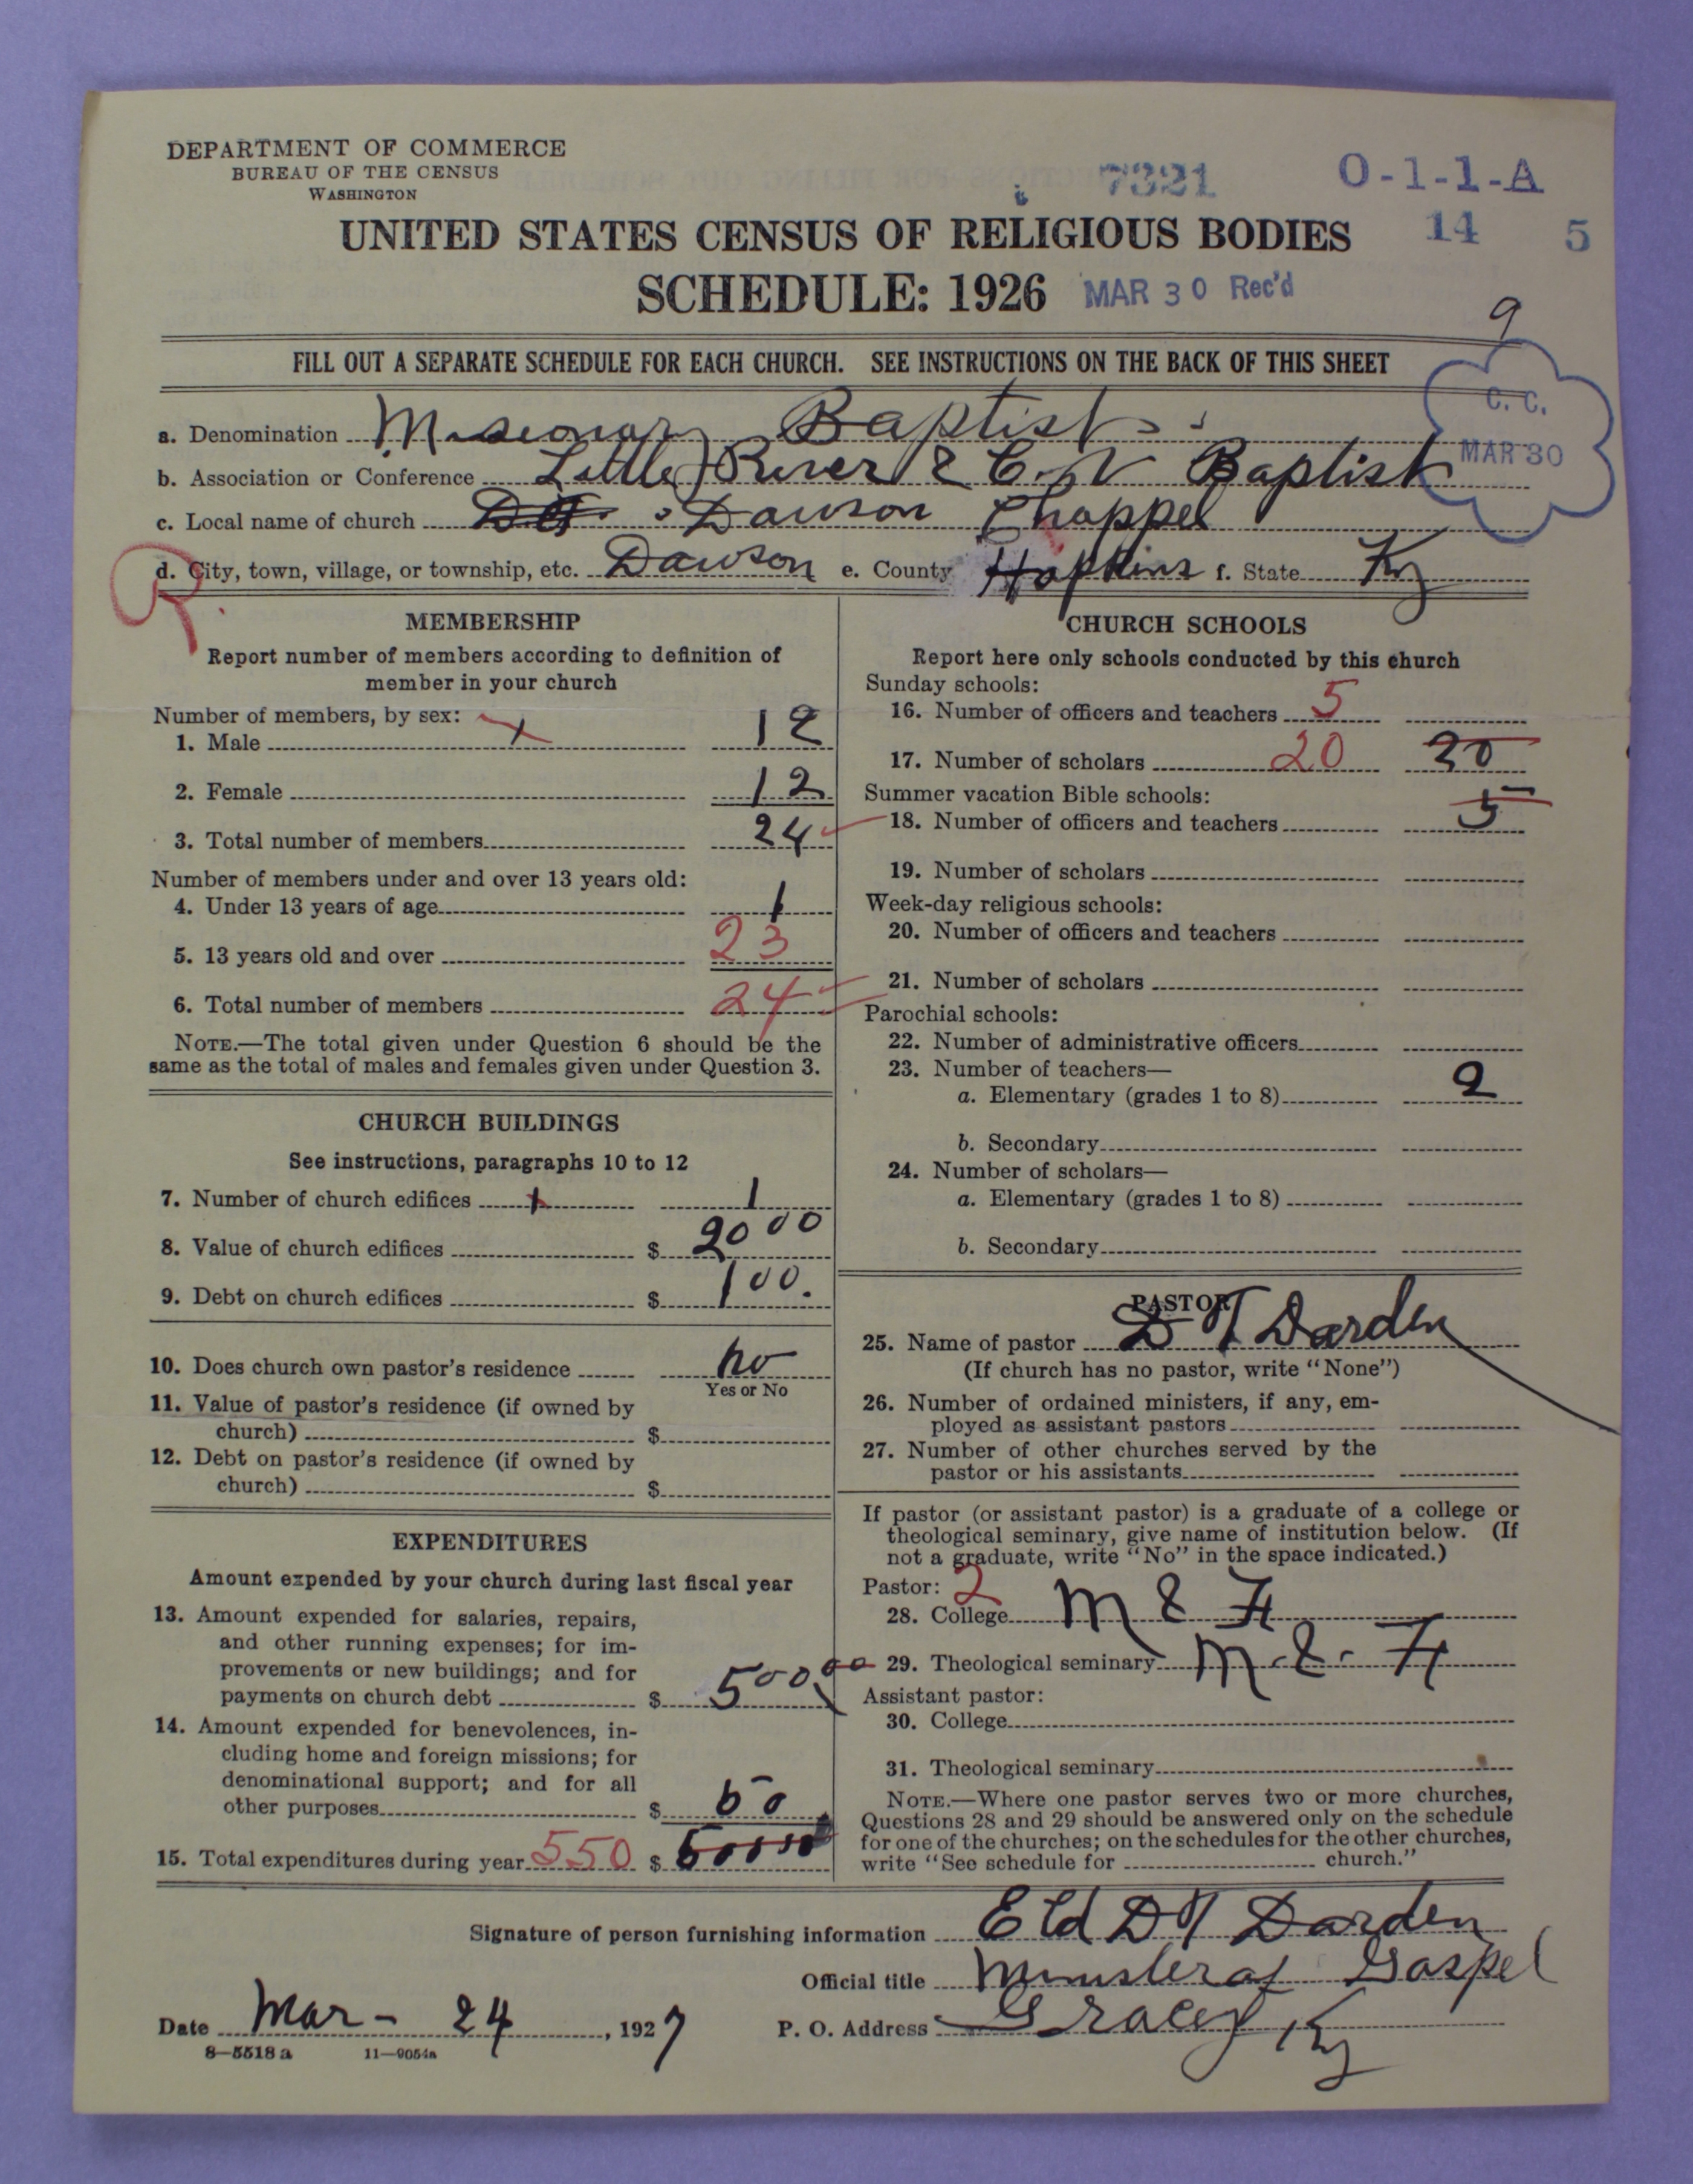 DEPARTMENT OF COMMERCE
BUREAU OF THE CENSUS
WASHINGTON
7321
O-1-1-A
14 5
UNITED STATES CENSUS OF RELIGIOUS BODIES
SCHEDULE: 1926 MAR 30 Rec'd
9
FILL OUT A SEPARATE SCHEDULE FOR EACH CHURCH. SEE INSTRUCTIONS ON THE BACK OF THIS SHEET
C. C.
MAR 30
a. Denomination Missionary Baptist
b. Association or Conference Little River & C. V Baptist
c. Local name of church Dawson Chappel
d. City, town, village, or township, etc. Dawson e. County Hopkins f. State Ky
MEMBERSHIP
Report number of members according to definition of
member in your church
Number of members, by sex:
1. Male 12
2. Female 12
3. Total number of members 24
Number of members under and over 13 years old:
4. Under 13 years of age 1
5. 13 years old and over 23
6. Total number of members 24
NOTE.—The total given under Question 6 should be the
same as the total of males and females given under Question 3.
CHURCH BUILDINGS
See instructions, paragraphs 10 to 12
7. Number of church edifices 1 1
8. Value of church edifices $ 2000
9. Debt on church edifices $ 100.
10. Does church own pastor's residence no
Yes or No
11. Value of pastor's residence (if owned by
church) $
12. Debt on pastor's residence (if owned by
church) $
EXPENDITURES
Amount expended by your church during last fiscal year
13. Amount expended for salaries, repairs,
and other running expenses; for im-
provements or new buildings; and for
payments on church debt $ 500.00
14. Amount expended for benevolences, in-
cluding home and foreign missions; for
denominational support; and for all
other purposes $ 50
15. Total expenditures during year 550 $
CHURCH SCHOOLS
Report here only schools conducted by this church
Sunday schools:
16. Number of officers and teachers 5
17. Number of scholars 20 20
Summer vacation Bible schools:
18. Number of officers and teachers 5
19. Number of scholars
Week-day religious schools:
20. Number of officers and teachers
21. Number of scholars
Parochial schools:
22. Number of administrative officers
23. Number of teachers—
a. Elementary (grades 1 to 8) 2
b. Secondary
24. Number of scholars—
a. Elementary (grades 1 to 8)
b. Secondary
PASTOR
25. Name of pastor D T Darden
(If church has no pastor, write "None")
26. Number of ordained ministers, if any, em-
ployed as assistant pastors
27. Number of other churches served by the
pastor or his assistants
If pastor (or assistant pastor) is a graduate of a college or
theological seminary, give name of institution below. (If
not a graduate, write "No" in the space indicated.)
Pastor: 2
28. College M & F
29. Theological seminary M. & F
Assistant pastor:
30. College
31. Theological seminary
NOTE.—Where one pastor serves two or more churches,
Questions 28 and 29 should be answered only on the schedule
for one of the churches; on the schedules for the other churches,
write "See schedule for church."
Signature of person furnishing information Eld D T Darden
Official title Minister of Gospel
Date Mar - 24, 1927 P. O. Address Gracey Ky
8—5518 a 11—9054a